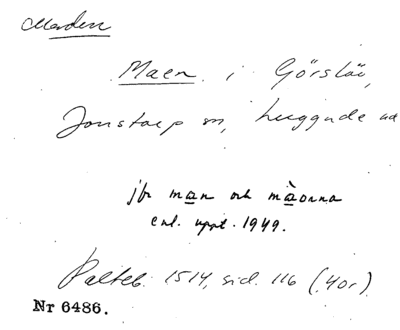 Marden
Maen i Görslöv,
Jonstorp sn, Luggude
jfr man och màonna
enl. uppt. 1949.
Palteb. 1514, sid. 116 (40r)
Nr 6486.